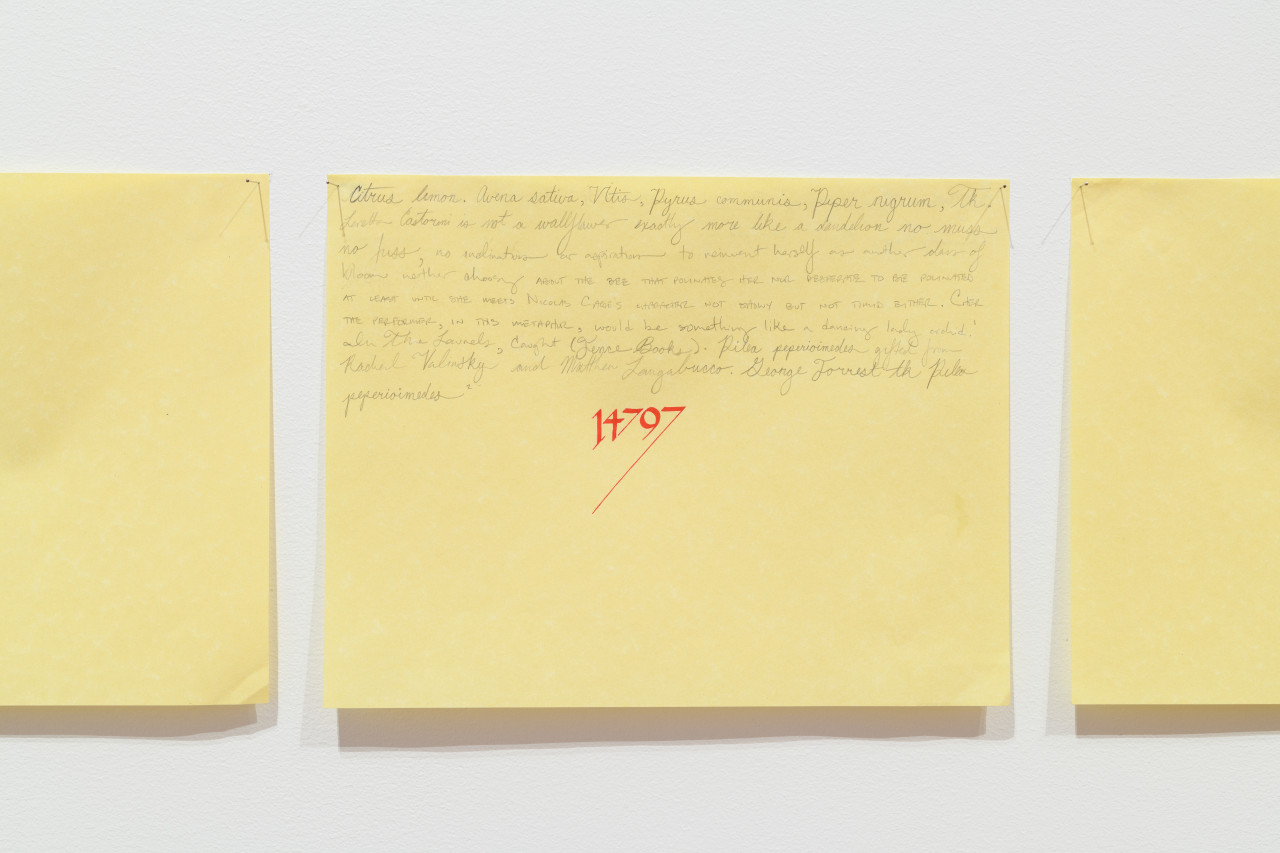 Citrus limon. Avena sativa, Vitis, Pyrus communis, Piper nigrum, Th
Castorini is not a wallflower exactly more like a dandelion no muss
no fuss, no inclination or aspiration to reinvent herself as another class of
bloom neither choosy ABOUT THE BEE THAT POLINATES HER NOR DESPERATE TO BE POLINATED
AT LEAST UNTIL SHE MEETS NICOLAS CAGE'S CHARACTER NOT SHOWY BUT NOT TIMID EITHER. CHER
THE PERFORMER, IN THIS METAPHOR, would be something like a dancing lady orchid.'
In The Laurels, Caught (Fence Books). Pilea peperioimedes gifted from
Rachel Valinsky and Matthew Langabusco. George Forrest th Pilea
peperioimedes"
14797